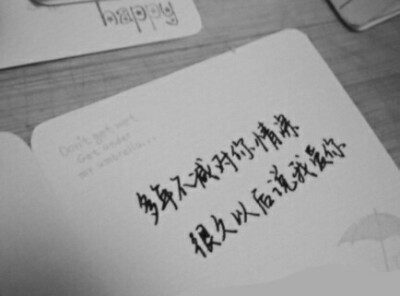 happy
Don't get wet.
Get under
my umbrella...
多年不减对你情深
很久以后说我爱你